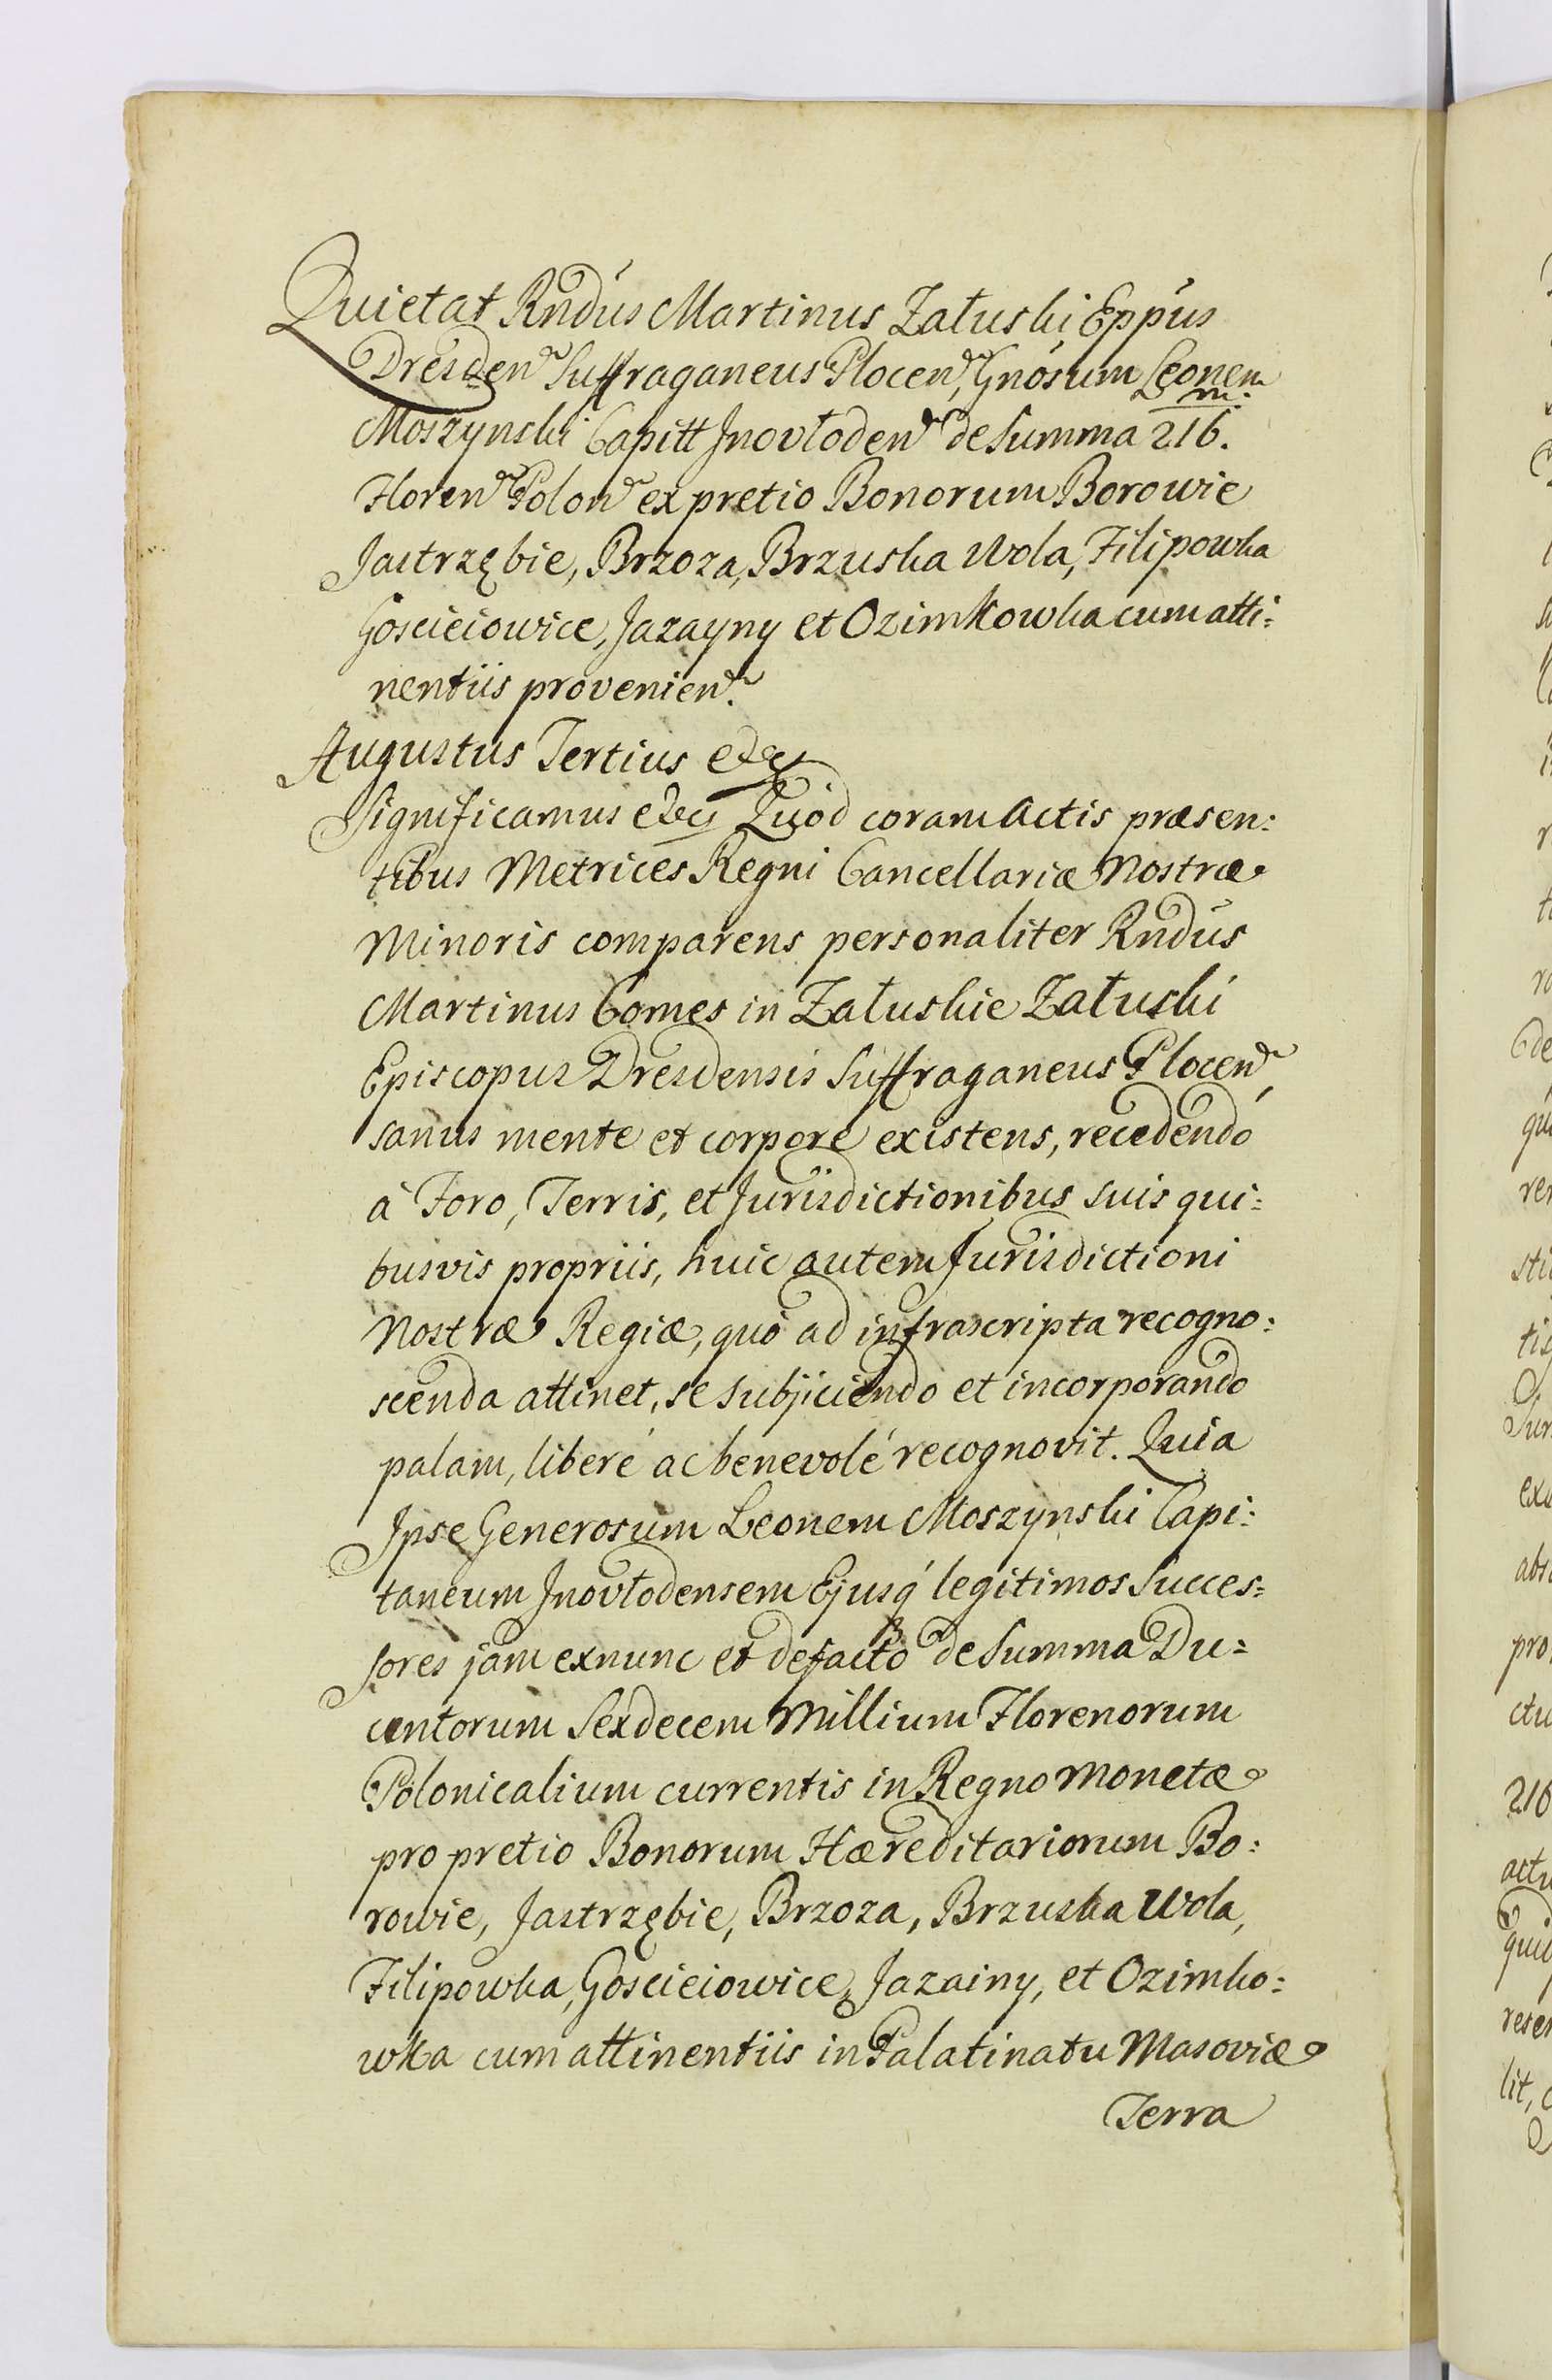 Quietat Rndus Martinus Załuski Eppus
Dresden Suffraganeus Plocen, Gnosum Leonem
Moszynski Capitt Jnovłoden de Summa 216.m.
Floren Polon ex pretio Bonorum Borowie
Jastrzębie, Brzoza, Brzuska Wola, Filipowka
Goscieiowice, Jazayny et Ozimkowka cum atti:
nentiis provenien.
Augustus Tertius &c
Significamus &c Quod coram Actis præsen:
tibus Metrices Regni Cancellariæ Nostræ
Minoris comparens personaliter Rndus
Martinus Comes in Załuskie Załuski
Episcopus Dresdensis Suffraganeus Plocen
sanus mente et corpore existens, recedendó
à Foro, Terris, et Jurisdictionibus suis qui:
busvis propriis, huic autem Jurisdictioni
Nostræ Regiæ, quò ad infrascripta recogno:
scenda attinet, se subjiciendo et incorporando
palam, liberé ac benevolé recognovit. Quia
Jpse Generosum Leonem Moszynski Capi:
taneum Jnovłodensem Ejusq́ legitimos Succes:
sores jam exnunc et defacto de Summa Du:
centorum Sexdecem Millium Florenorum
Polonicalium currentis in Regno Monetæ
pro pretio Bonorum Hæreditariorum Bo:
rowie, Jastrzębie, Brzoza, Brzuska Wola,
Filipowka, Goscieiowice, Jazainy, et Ozimko:
wka cum attinentiis in Palatinatu Masoviæ
Terra